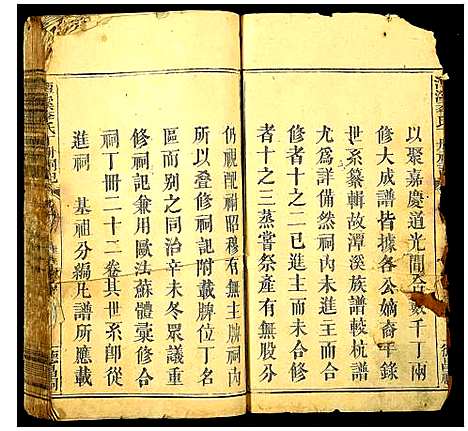 以聚嘉慶道光間合數千丁兩
修大成譜皆據各公嫡裔平錄
世系纂輯故潭溪族譜較杭譜
尤爲詳備然祠內未進主而
者十之二其進主而未合修
者十之三蒸嘗祭產有無股分
仍視配祠昭穆有無主牌祠內
所以叠修祠記附載牌位丁名
區而別之同治辛未冬眾議重
修祠記兼用歐法蘇體彙修合
祠丁冊二十二卷其世系卽從
進祠 基祖分編凡譜所應載